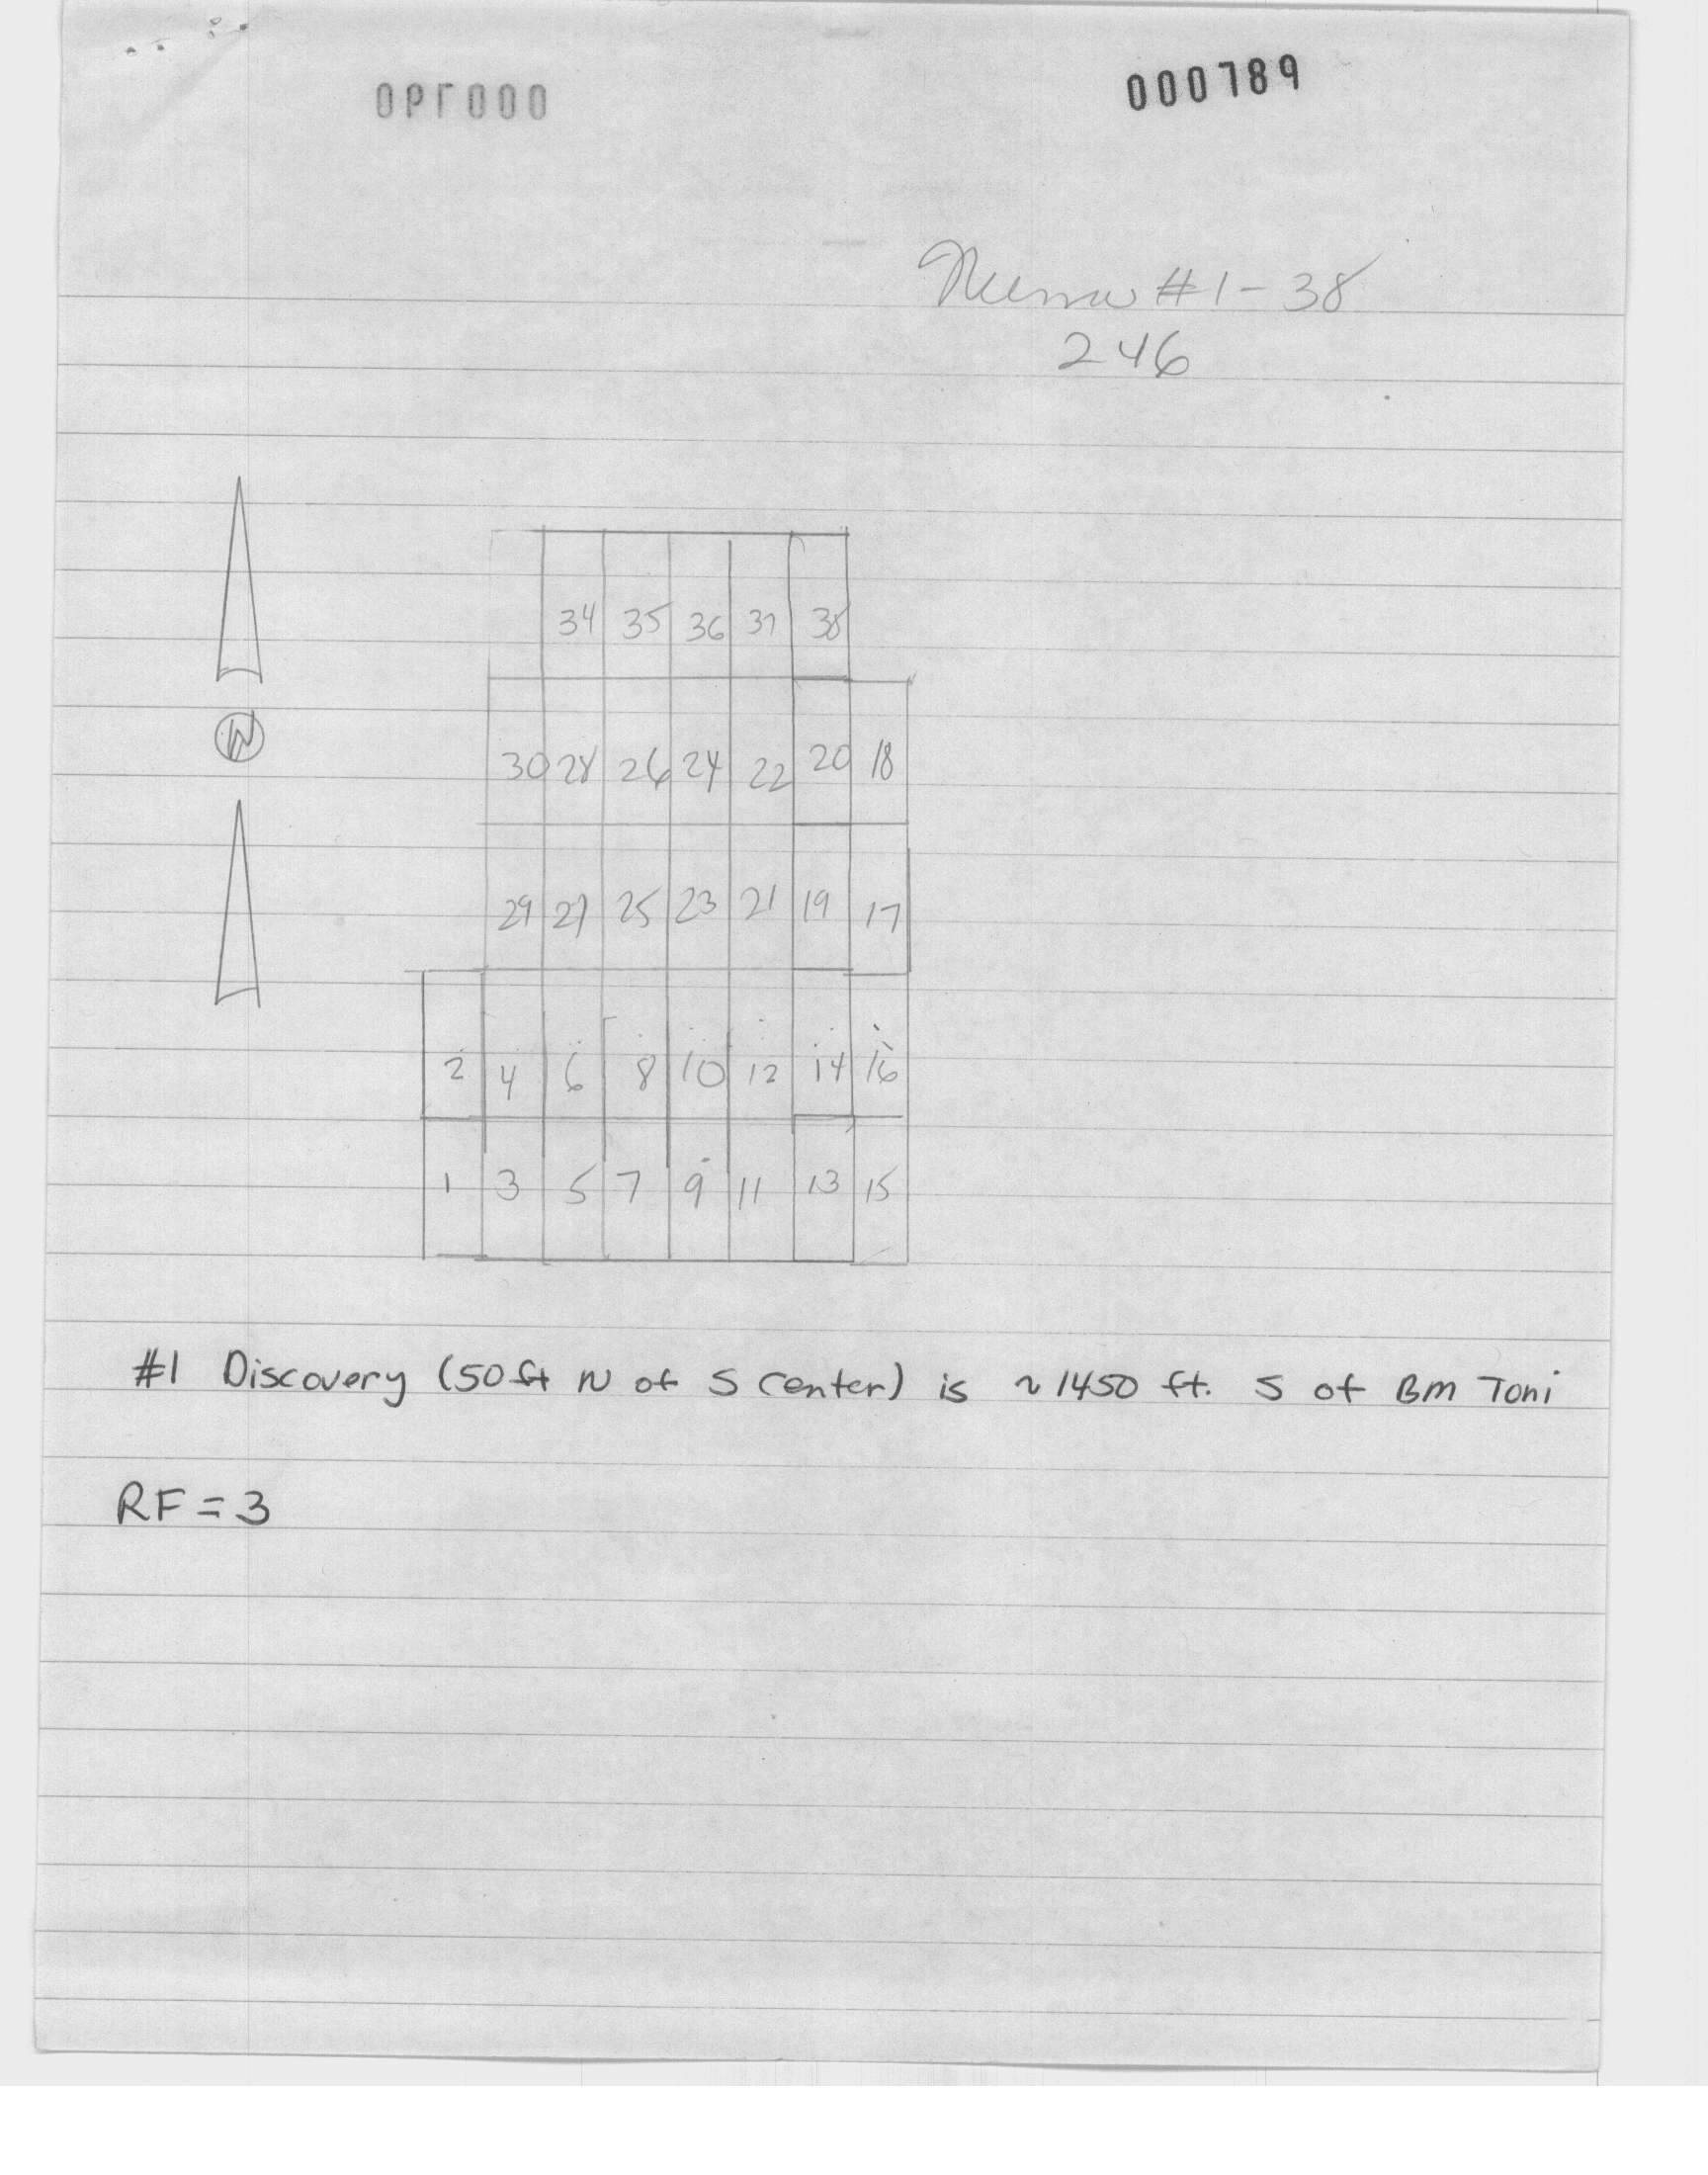 000789
#1-38
246
34 35 36 37 38
30 28 26 24 22 20 18
N
29 27 25 23 21 19 17
2 4 6 8 10 12 14 16
1 3 5 7 9 11 13 15
#1 Discovery (50 ft N of S center) is ~1450 ft. S of BM Toni
RF = 3